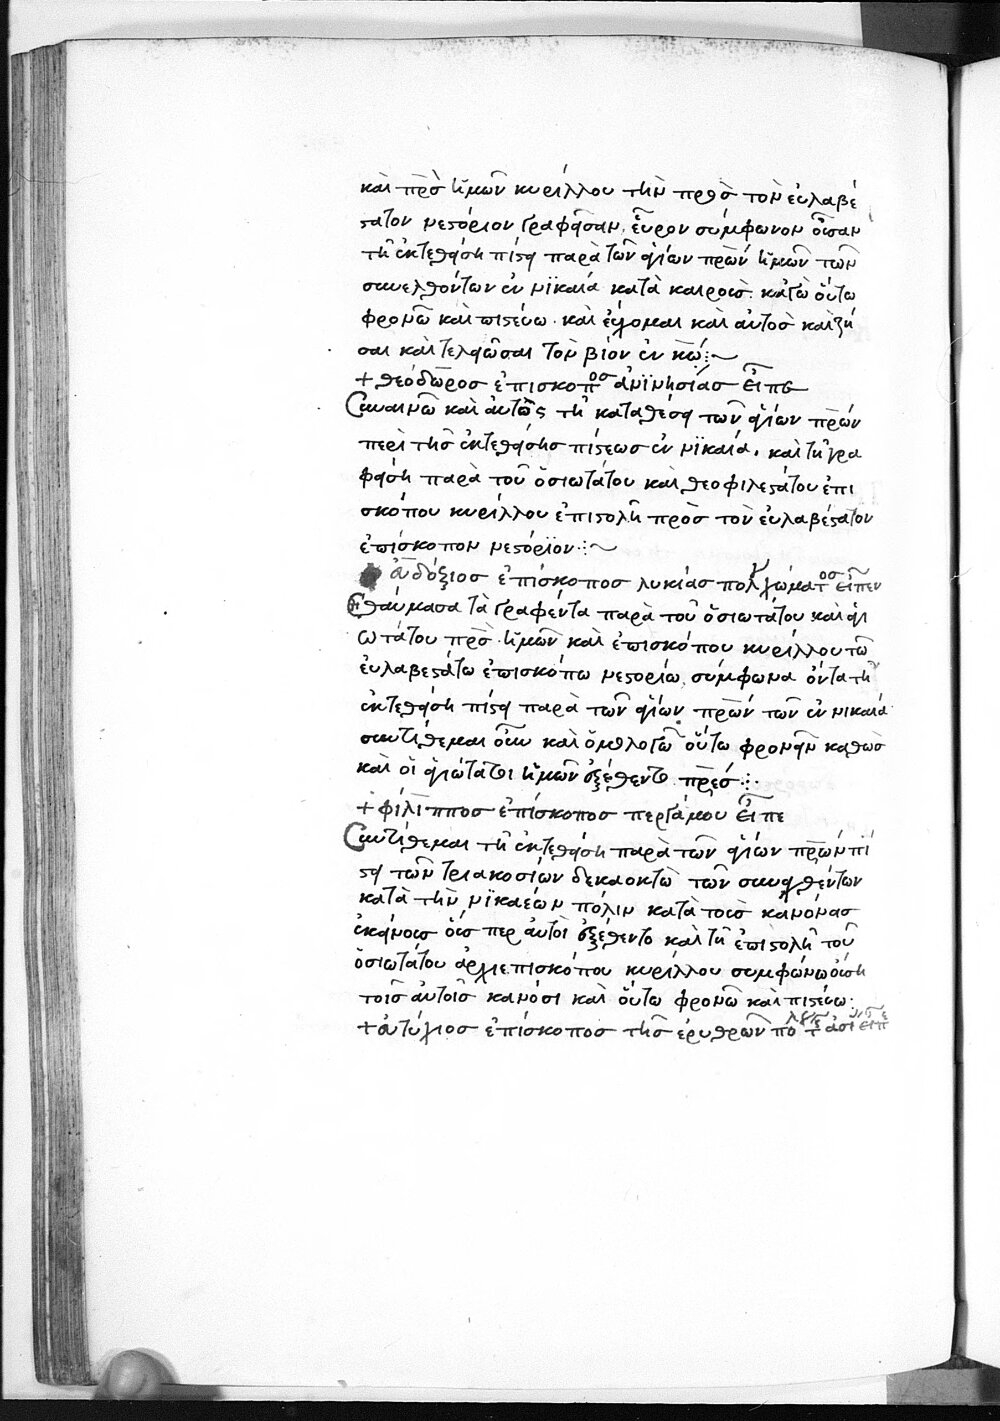 καὶ πρ̅ς ἡμῶν κυρίλλου τὴν πρὸς τὸν εὐλαβέ
στατον νεστόριον γραφεῖσαν, εὗρον σύμφωνον οὖσαν
τῇ ἐκτεθείσῃ πίστει παρὰ τῶν ἁγίων πρ̅ων ἡμῶν τῶν
συνελθόντων ἐν νϊκαίᾳ κατὰ καιροὺς. κἀγὼ οὕτω
φρονῶ καὶ πιστεύω. καὶ εὔχομαι καὶ αὐτὸς καὶ ζῆ
σαι καὶ τελειῶσαι τὸν βίον ἐν κ̅ω :~
+ θεόδωρος ἐπίσκοπος ἀνϊνησίας εἶπε
Συναινῶ καὶ αὐτὸς τῇ καταθέσει τῶν ἁγίων πρ̅ων
περὶ τῆς ἐκτεθείσης πίστεως ἐν νϊκαίᾳ. καὶ τῇ γρα
φείσῃ παρὰ τοῦ ὁσιωτάτου καὶ θεοφιλεστάτου ἐπι
σκόπου κυρίλλου ἐπιστολῇ πρὸς τὸν εὐλαβέστατον
ἐπίσκοπον νεστόριον :~
εὐδόξιος ἐπίσκοπος λυκίας πολ χώματος εἶπεν
Ἐθαύμασα τὰ γραφέντα παρὰ τοῦ ὁσιωτάτου καὶ ἁγι
ωτάτου πρ̅ς ἡμῶν καὶ ἐπισκόπου κυρίλλου τῷ
εὐλαβεστάτῳ ἐπισκόπῳ νεστορίῳ, σύμφωνα ὄντα τῇ
ἐκτεθείσῃ πίστει παρὰ τῶν ἁγίων πρ̅ων τῶν ἐν νικαίᾳ
συντίθεμαι οὖν καὶ ὁμολογῶ οὕτω φρονεῖν καθὼς
καὶ οἱ ἁγιώτατοι ἡμῶν ἐξέθεντο πρ̅ες :
+ φίλιππος ἐπίσκοπος περγάμου εἶπε
Συντίθεμαι τῇ ἐκτεθείσῃ παρὰ τῶν ἁγίων πρ̅ων πί
στει τῶν τριακοσίων δεκαοκτὼ τῶν συναχθέντων
κατὰ τὴν νϊκαέων πόλιν κατὰ τοὺς κανόνας
ἐκείνους οὕς περ αὐτοὶ ἐξέθεντο καὶ τῇ ἐπιστολῇ τοῦ
ὁσιωτάτου ἀρχιεπισκόπου κυρίλλου συμφώνω οὔσῃ
τοῖς αὐτοῖς κανόσι καὶ οὕτω φρονῶ καὶ πιστεύω:
+ εὐτύχιος ἐπίσκοπος τῆς ἐρυθρῶν πο τ ἀσί εἶπ